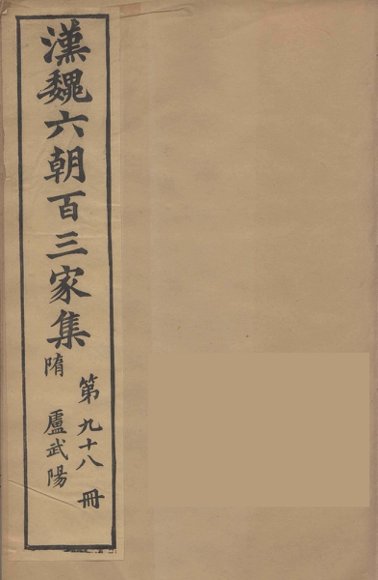 漢魏六朝百三家集
第九十八冊
隋 盧武陽